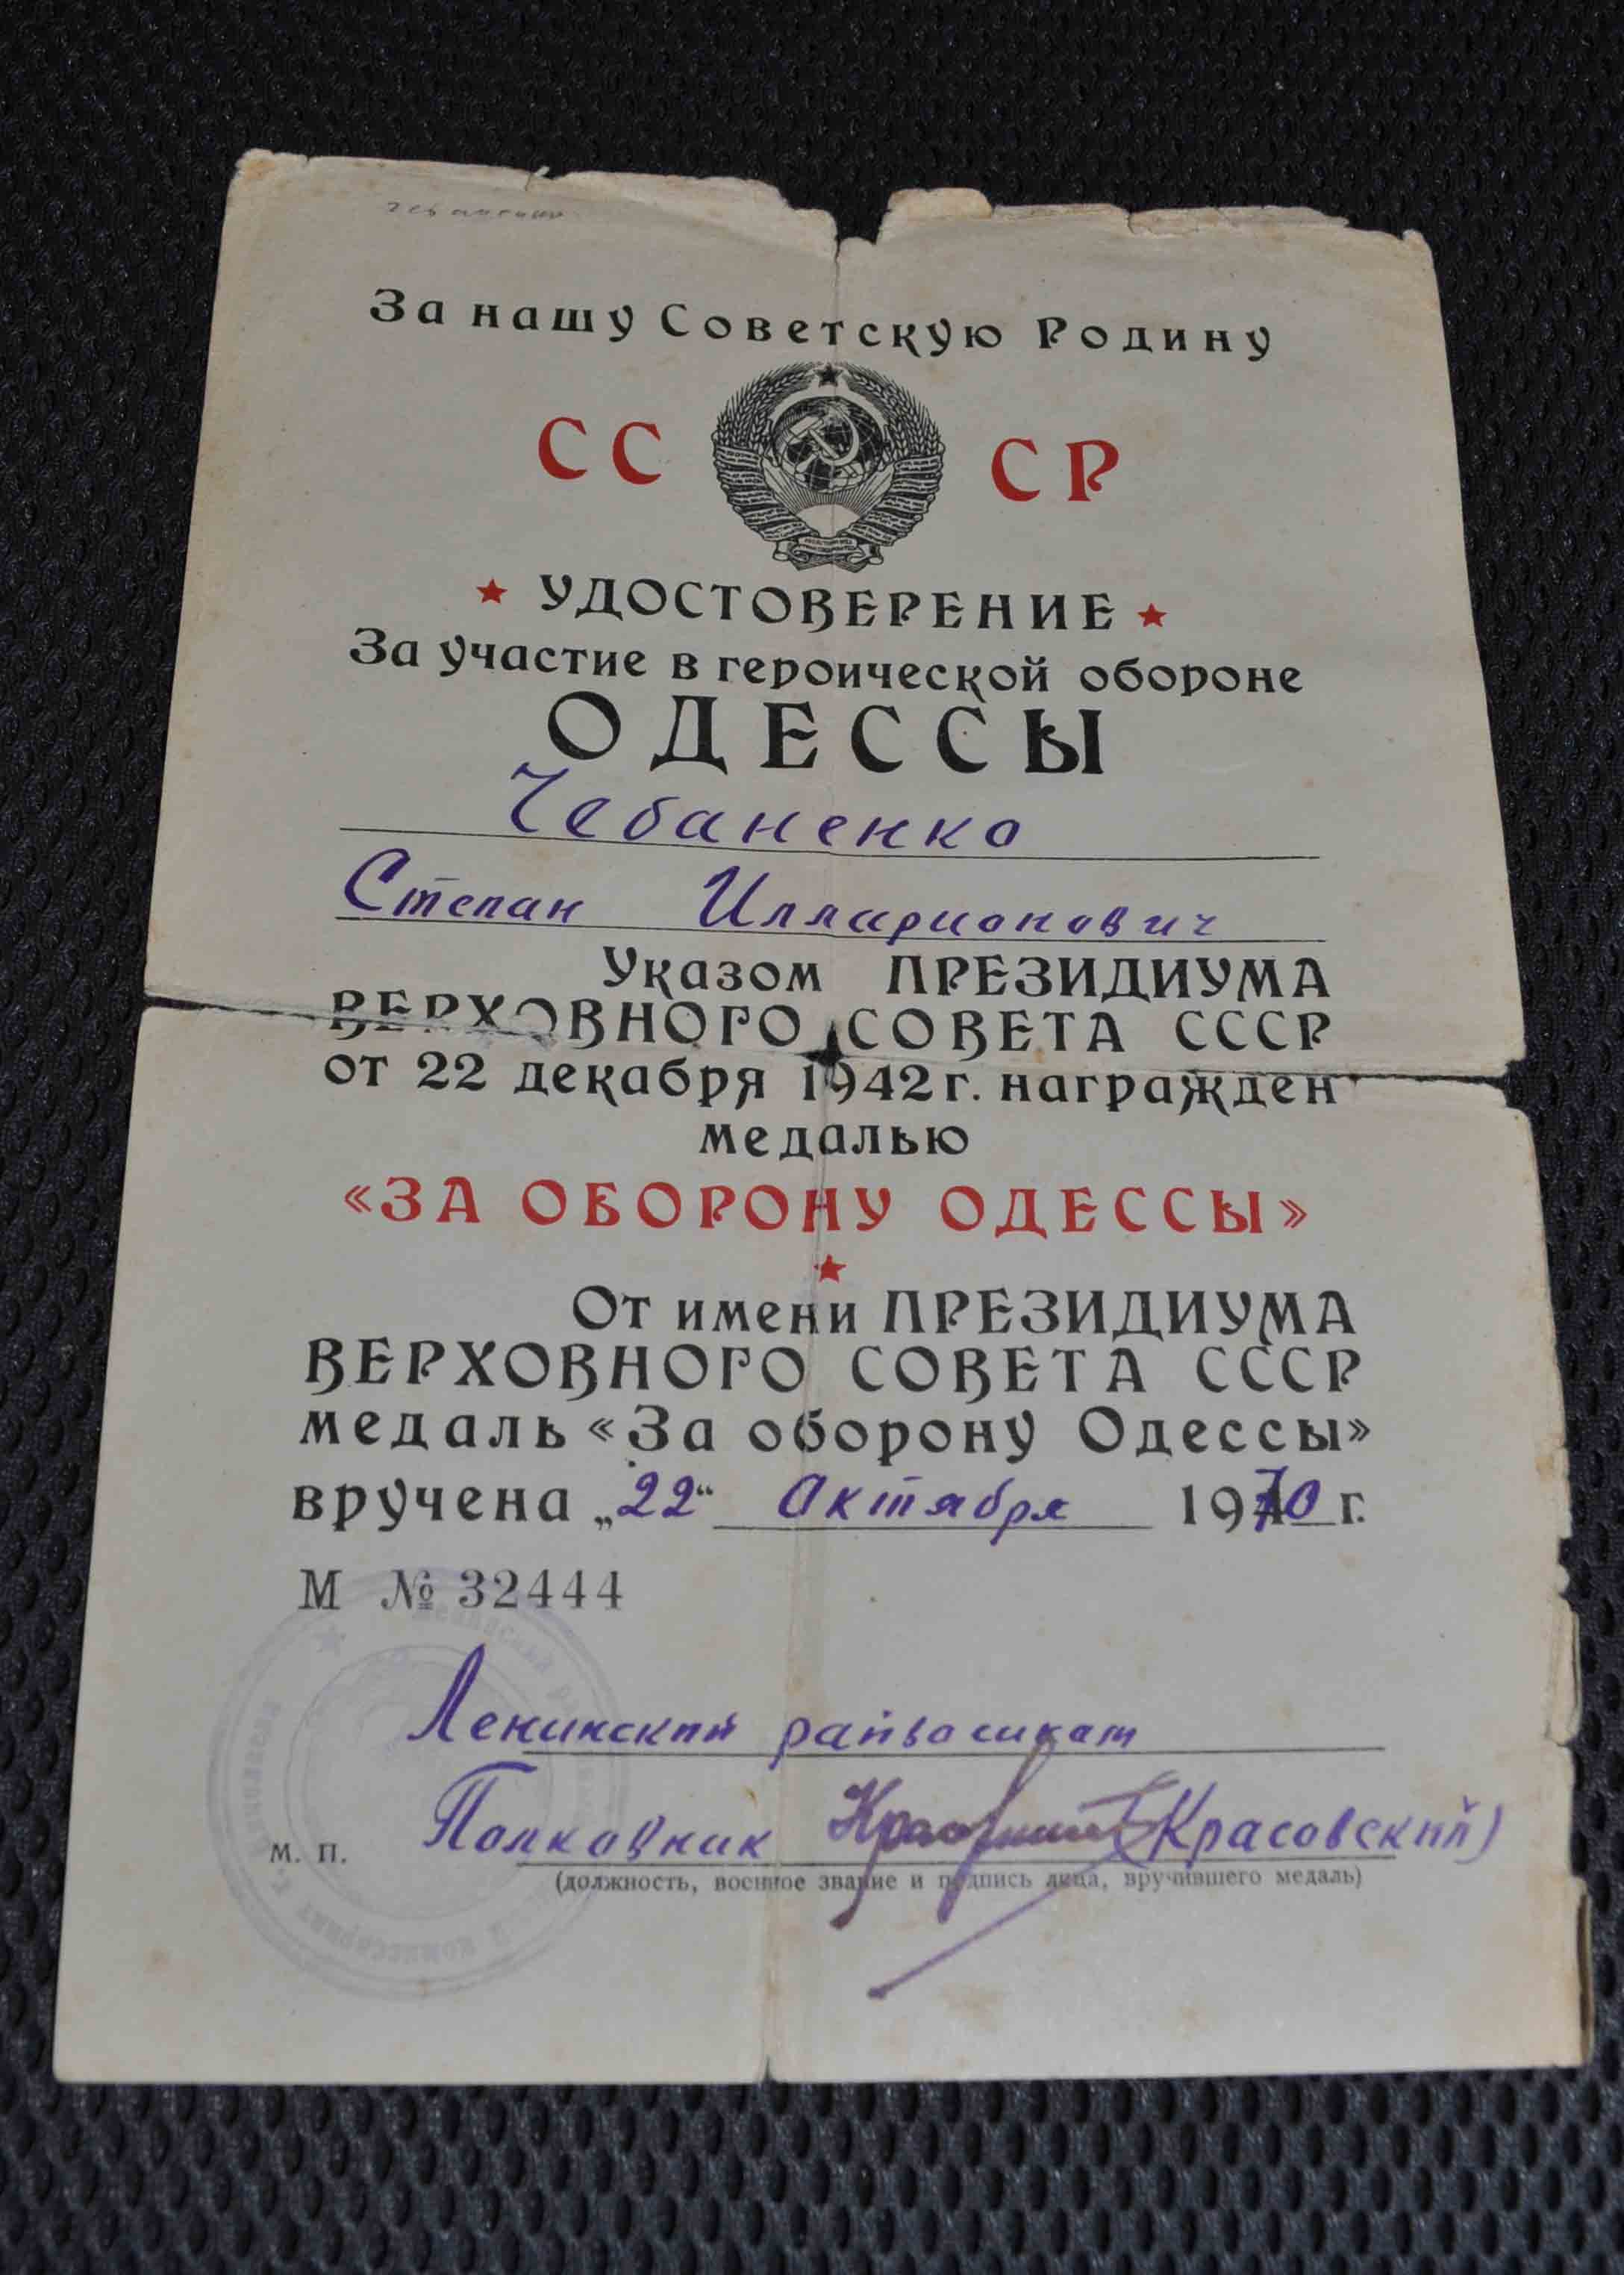 Чебаненко
За нашу Советскую Родину
СС СР
УДОСТОВЕРЕНИЕ
За участие в героической обороне
ОДЕССЫ
Чебаненко
Степан Илларионович
Указом ПРЕЗИДИУМА
ВЕРХОВНОГО СОВЕТА СССР
от 22 декабря 1942 г. награжден
медалью
«ЗА ОБОРОНУ ОДЕССЫ»
От имени ПРЕЗИДИУМА
ВЕРХОВНОГО СОВЕТА СССР
медаль «За оборону Одессы»
вручена „22“ Октября 1970 г.
М № 32444
Ленинский райвоенкомат
Полковник (Красовский)
м. п.
(должность, военное звание и подпись лица, вручившего медаль)